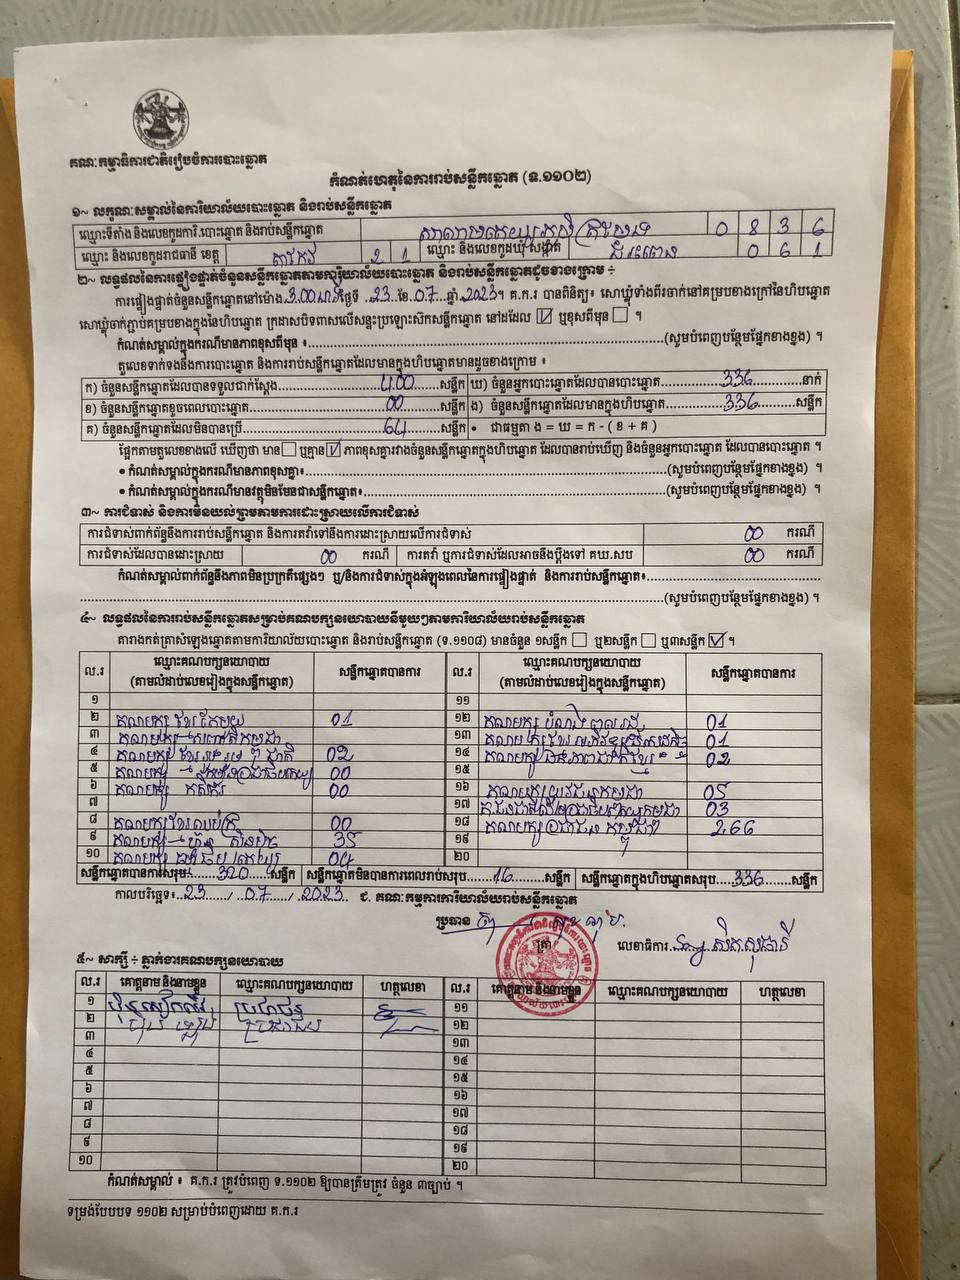 គណៈកម្មាធិការជាតិរៀបចំការបោះឆ្នោត
កំណត់ហេតុនៃការរាប់សន្លឹកឆ្នោត (ទ.១១០២)
១~ លក្ខណៈសម្គាល់នៃការិយាល័យបោះឆ្នោត និងរាប់សន្លឹកឆ្នោត
ឈ្មោះទីតាំង និងលេខកូដការិ.បោះឆ្នោត និងរាប់សន្លឹកឆ្នោត 0 8 3 6
ឈ្មោះ និងលេខកូដរាជធានី ខេត្ត តាកែវ 2 1 ឈ្មោះ និងលេខកូដឃុំ-សង្កាត់ 0 6 1
២~ លទ្ធផលនៃការផ្ទៀងផ្ទាត់ចំនួនសន្លឹកឆ្នោតតាមការិយាល័យបោះឆ្នោត និងរាប់សន្លឹកឆ្នោតដូចខាងក្រោម ÷
ការផ្ទៀងផ្ទាត់ចំនួនសន្លឹកឆ្នោតនៅម៉ោង 3:00 ថ្ងៃទី 23 ខែ 07 ឆ្នាំ 2023 ។ គ.ក.រ បានពិនិត្យ៖ សោឃ្លុំទាំងពីរចាក់នៅគម្របខាងក្រៅនៃហិបឆ្នោត
សោឃ្លុំចាក់ភ្ជាប់គម្របខាងក្នុងនៃហិបឆ្នោត ក្រដាសបិទពាសលើសន្ទះប្រឡោះសិកសន្លឹកឆ្នោត នៅដដែល ☑ ឬខុសពីមុន ☐ ។
កំណត់សម្គាល់ក្នុងករណីមានភាពខុសពីមុន ៖ (សូមបំពេញបន្ថែមផ្នែកខាងខ្នង) ។
តួលេខទាក់ទងនឹងការបោះឆ្នោត និងការរាប់សន្លឹកឆ្នោតដែលមានក្នុងហិបឆ្នោតមានដូចខាងក្រោម ៖
ក) ចំនួនសន្លឹកឆ្នោតដែលបានទទួលជាក់ស្តែង 400 សន្លឹក ឃ) ចំនួនអ្នកបោះឆ្នោតដែលបានបោះឆ្នោត 336 នាក់
ខ) ចំនួនសន្លឹកឆ្នោតខូចពេលបោះឆ្នោត 00 សន្លឹក ង) ចំនួនសន្លឹកឆ្នោតដែលមានក្នុងហិបឆ្នោត 336 សន្លឹក
គ) ចំនួនសន្លឹកឆ្នោតដែលមិនបានប្រើ 64 សន្លឹក • ជាធម្មតា ង = ឃ = ក - ( ខ + គ )
ផ្អែកតាមតួលេខខាងលើ ឃើញថា មាន ☐ ឬគ្មាន ☑ ភាពខុសគ្នារវាងចំនួនសន្លឹកឆ្នោតក្នុងហិបឆ្នោត ដែលបានរាប់ឃើញ និងចំនួនអ្នកបោះឆ្នោត ដែលបានបោះឆ្នោត ។
• កំណត់សម្គាល់ក្នុងករណីមានភាពខុសគ្នា៖ (សូមបំពេញបន្ថែមផ្នែកខាងខ្នង) ។
• កំណត់សម្គាល់ក្នុងករណីមានវត្ថុមិនមែនជាសន្លឹកឆ្នោត៖ (សូមបំពេញបន្ថែមផ្នែកខាងខ្នង) ។
៣~ ការជំទាស់ និងការមិនយល់ព្រមតាមការដោះស្រាយលើការជំទាស់
ការជំទាស់ពាក់ព័ន្ធនឹងការរាប់សន្លឹកឆ្នោត និងការតវ៉ាទៅនឹងការដោះស្រាយលើការជំទាស់ 00 ករណី
ការជំទាស់ដែលបានដោះស្រាយ 00 ករណី ការតវ៉ា ឬការជំទាស់ដែលអាចនឹងប្តឹងទៅ គឃ.សប 00 ករណី
កំណត់សម្គាល់ពាក់ព័ន្ធនឹងភាពមិនប្រក្រតីផ្សេងៗ ឬ/និងការជំទាស់ក្នុងអំឡុងពេលនៃការផ្ទៀងផ្ទាត់ និងការរាប់សន្លឹកឆ្នោត៖
(សូមបំពេញបន្ថែមផ្នែកខាងខ្នង) ។
៤~ លទ្ធផលនៃការរាប់សន្លឹកឆ្នោតសម្រាប់គណបក្សនយោបាយនីមួយៗតាមការិយាល័យរាប់សន្លឹកឆ្នោត
តារាងកត់ត្រាសំឡេងឆ្នោតតាមការិយាល័យបោះឆ្នោត និងរាប់សន្លឹកឆ្នោត (ទ.១១០៨) មានចំនួន ១សន្លឹក ☐ ឬ២សន្លឹក ☐ ឬ៣សន្លឹក ☑ ។
ល.រ ឈ្មោះគណបក្សនយោបាយ (តាមលំដាប់លេខរៀងក្នុងសន្លឹកឆ្នោត) សន្លឹកឆ្នោតបានការ ល.រ ឈ្មោះគណបក្សនយោបាយ (តាមលំដាប់លេខរៀងក្នុងសន្លឹកឆ្នោត) សន្លឹកឆ្នោតបានការ
១ ១១
២ គណបក្ស ខ្មែរតែមួយ 01 ១២ គណបក្ស 01
៣ គណបក្ស ១៣ គណបក្ស 01
៤ គណបក្ស ខ្មែររួបរួមជាតិ 02 ១៤ គណបក្ស ឯកភាពជាតិខ្មែរ 02
៥ គណបក្ស 00 ១៥
៦ គណបក្ស កសិករ 00 ១៦ គណបក្ស យុវជនកម្ពុជា 05
៧ ១៧ 03
៨ គណបក្ស ខ្មែរឈប់ក្រ 00 ១៨ គណបក្ស ប្រជាជនកម្ពុជា 266
៩ គណបក្ស ហ្វ៊ុនស៊ិនប៉ិច 35 ១៩
១០ គណបក្ស 04 ២០
សន្លឹកឆ្នោតបានការសរុប 320 សន្លឹក សន្លឹកឆ្នោតមិនបានការពេលរាប់សរុប 16 សន្លឹក សន្លឹកឆ្នោតក្នុងហិបឆ្នោតសរុប 336 សន្លឹក
កាលបរិច្ឆេទ៖ 23 / 07 / 2023 ជ. គណៈកម្មការការិយាល័យរាប់សន្លឹកឆ្នោត
ប្រធាន ត្រា លេខាធិការ
៥~ សាក្សី ÷ ភ្នាក់ងារគណបក្សនយោបាយ
ល.រ គោត្តនាម និងនាមខ្លួន ឈ្មោះគណបក្សនយោបាយ ហត្ថលេខា ល.រ គោត្តនាម និងនាមខ្លួន ឈ្មោះគណបក្សនយោបាយ ហត្ថលេខា
១ ប្រជាជន ១១
២ ១២
៣ ១៣
៤ ១៤
៥ ១៥
៦ ១៦
៧ ១៧
៨ ១៨
៩ ១៩
១០ ២០
កំណត់សម្គាល់ ៖ គ.ក.រ ត្រូវបំពេញ ទ.១១០២ ឱ្យបានត្រឹមត្រូវ ចំនួន ៣ច្បាប់ ។
ទម្រង់បែបបទ ១១០២ សម្រាប់បំពេញដោយ គ.ក.រ